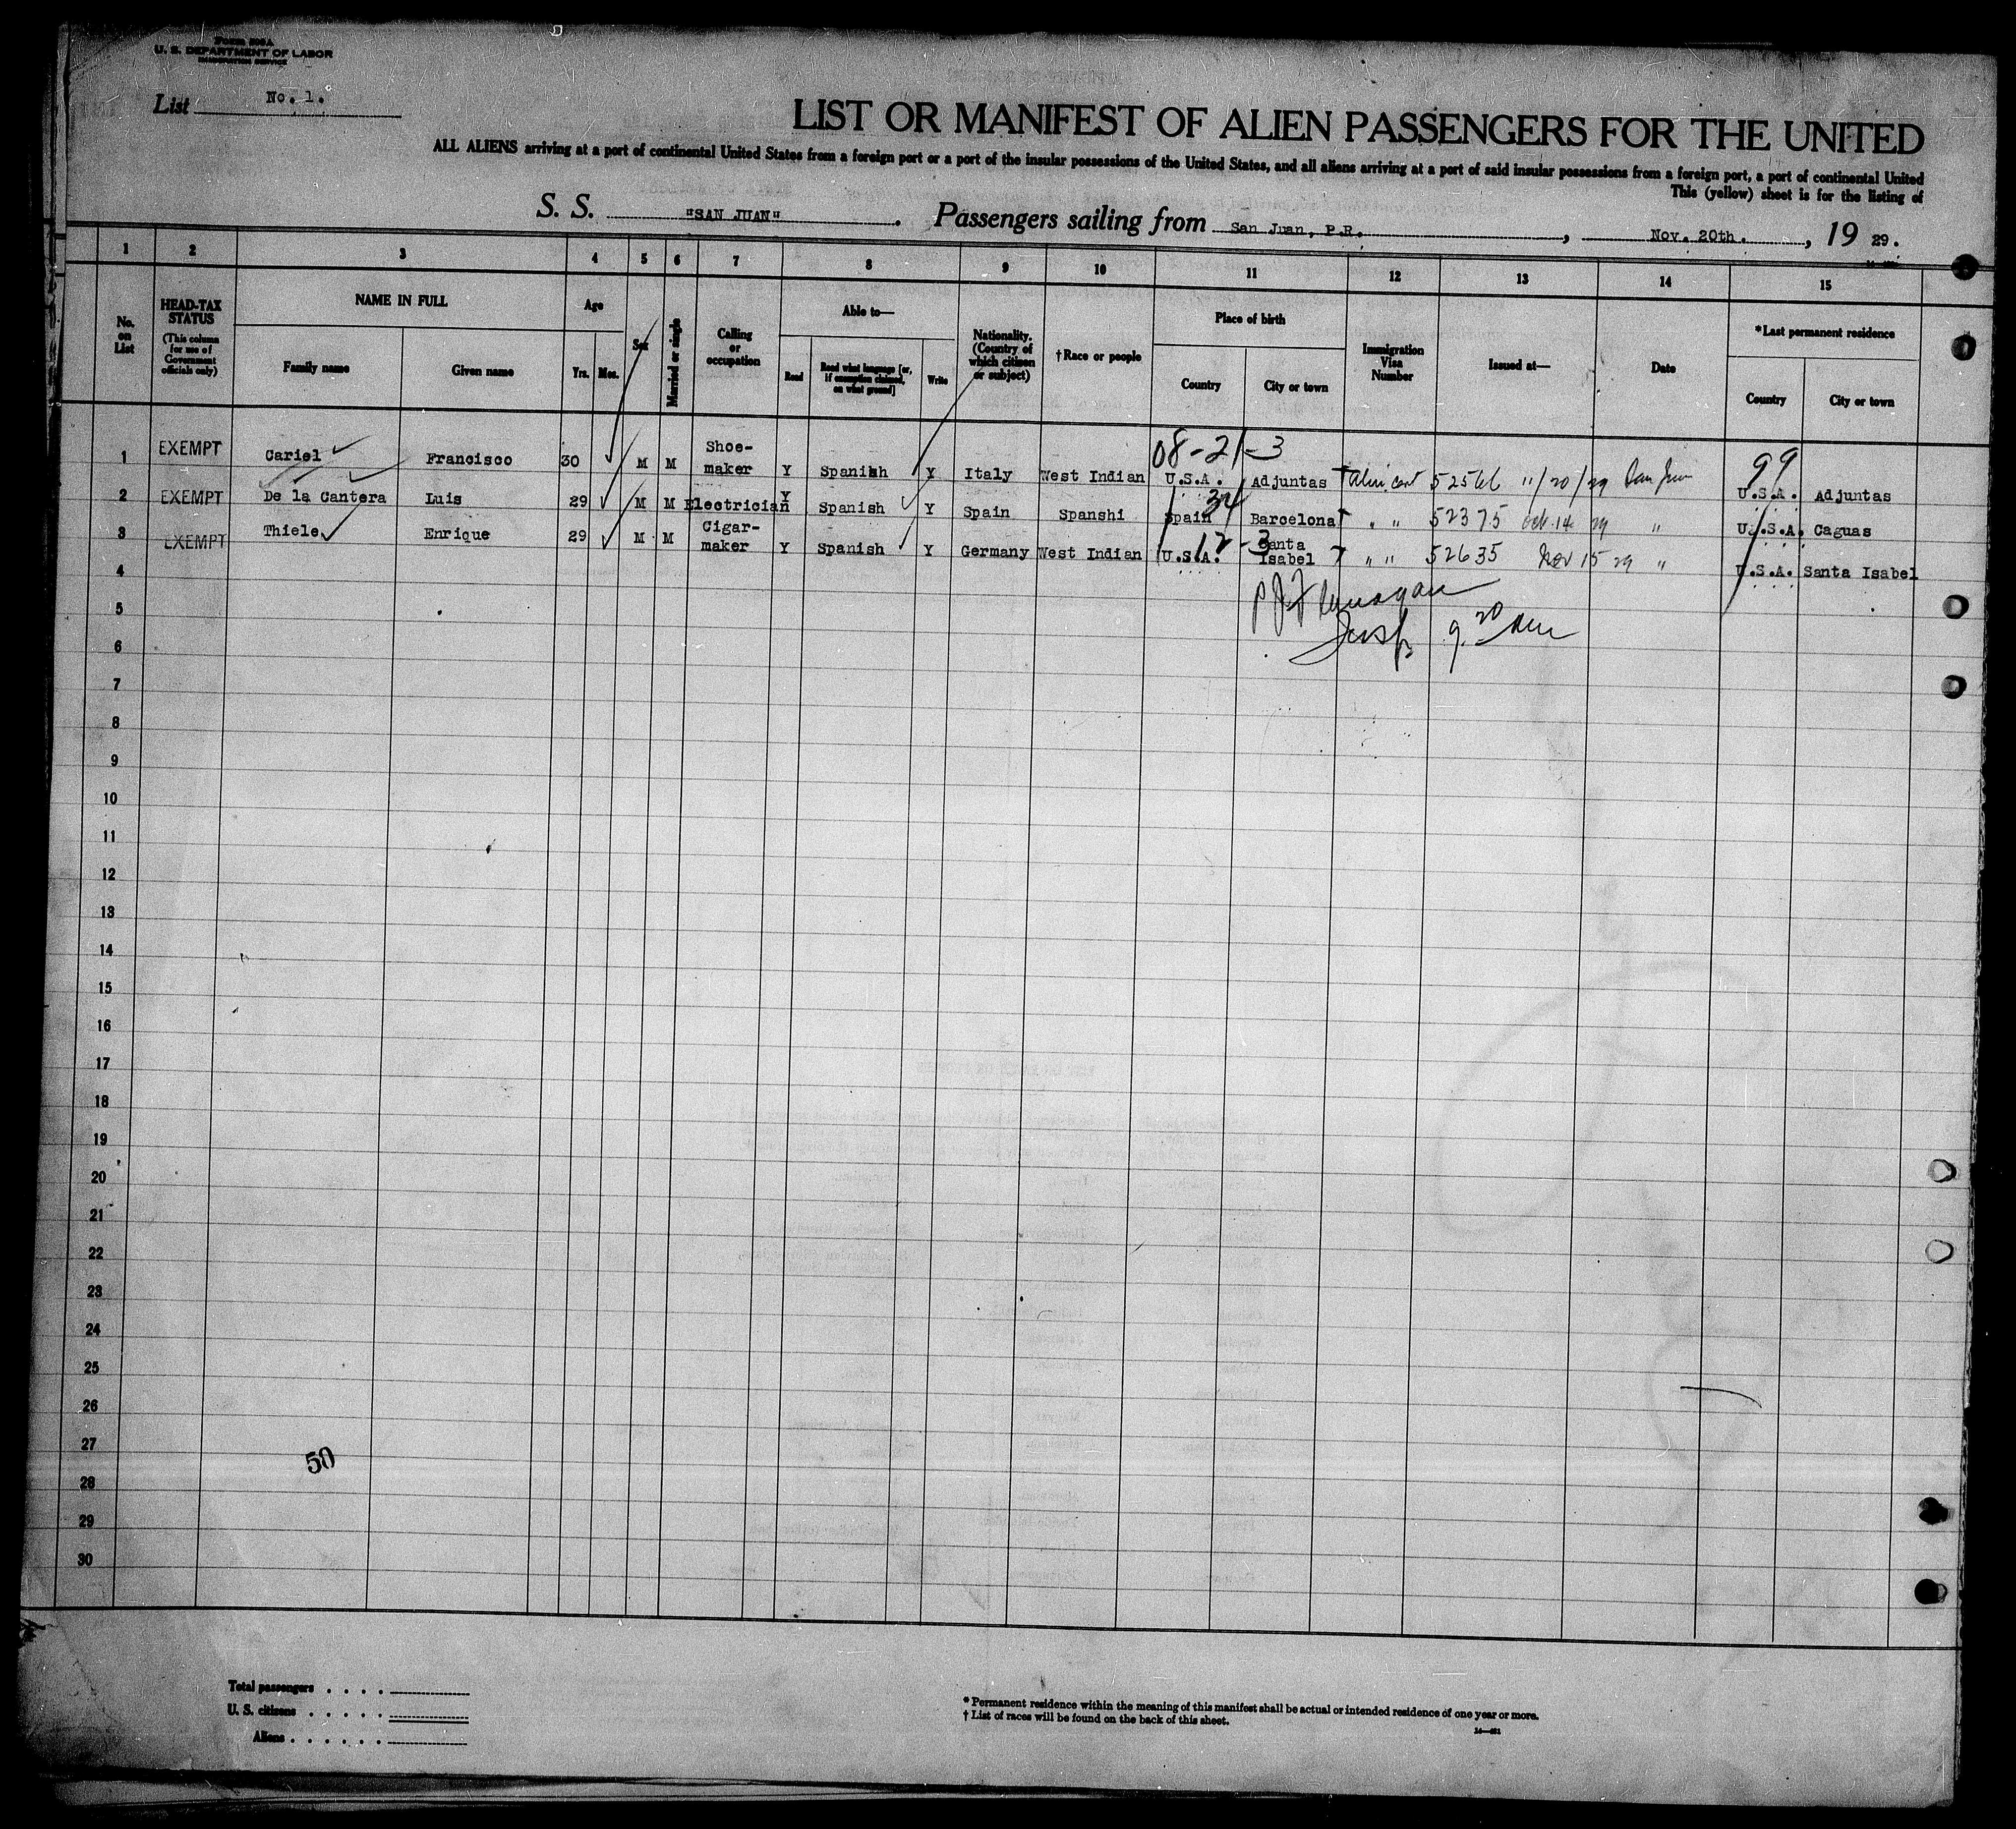 Form 500A
U. S. DEPARTMENT OF LABOR
IMMIGRATION SERVICE
List No. 1.
LIST OR MANIFEST OF ALIEN PASSENGERS FOR THE UNITED
ALL ALIENS arriving at a port of continental United States from a foreign port or a port of the insular possessions of the United States, and all aliens arriving at a port of said insular possessions from a foreign port, a port of continental United
This (yellow) sheet is for the listing of
S. S. "SAN JUAN". Passengers sailing from San Juan, P.R., Nov. 20th., 19 29.
1 2 3 4 5 6 7 8 9 10 11 12 13 14 15
No. on List
HEAD-TAX STATUS (This column for use of Government officials only)
NAME IN FULL
Family name
Given name
Age
Yrs. Mos.
Sex
Married or single
Calling or occupation
Able to—
Read
Read what language [or, if exemption claimed, on what ground]
Write
Nationality. (Country of which citizen or subject)
†Race or people
Place of birth
Country
City or town
Immigration Visa Number
Issued at—
Date
*Last permanent residence
Country
City or town
08-21-3
99
1 EXEMPT Cariel Francisco 30 M M Shoe-maker Y Spanish Y Italy West Indian U.S.A. Adjuntas 11/20/29 San Juan U.S.A. Adjuntas
34
2 EXEMPT De la Cantera Luis 29 M M Electrician Y Spanish Y Spain Spanshi Spain Barcelona " " 52375 Oct. 14 29 " U.S.A. Caguas
12-3
3 EXEMPT Thiele Enrique 29 M M Cigar-maker Y Spanish Y Germany West Indian U.S.A. Santa Isabel " " 52635 Nov 15 29 " U.S.A. Santa Isabel
4
5
Insp 9.20 am
6
7
8
9
10
11
12
13
14
15
16
17
18
19
20
21
22
23
24
25
26
27
50
28
29
30
Total passengers . . . .
U. S. citizens . . . . .
Aliens . . . . . .
* Permanent residence within the meaning of this manifest shall be actual or intended residence of one year or more.
† List of races will be found on the back of this sheet.